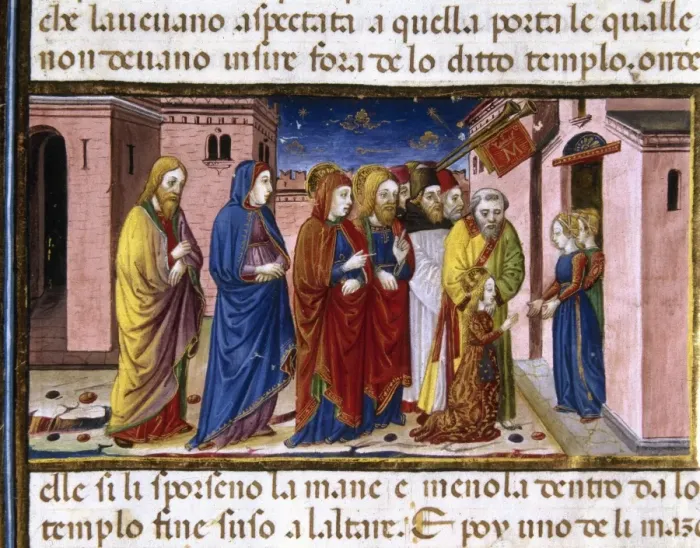 che laueuano aspectata a quella porta le qualle
non deuano insire fora de lo ditto templo. onde
M
elle si li sporseno la mane e menola dentro da lo
templo fine suso a laltare. E poy uno de li